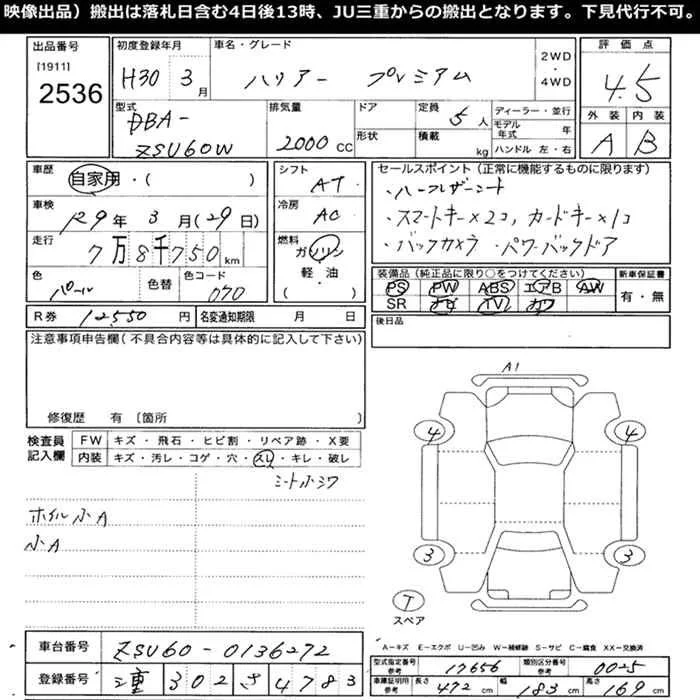 映像出品）搬出は落札日含む4日後13時、JU三重からの搬出となります。下見代行不可。
出品番号 初度登録年月 車名・グレード 2WD ・ 4WD 評価点
[1911]
2536 H30 3月 ハリアー プレミアム 4.5
型式 排気量 ドア 定員 5人 ディーラー・並行 外装 内装
DBA- 形状 積載 kg モデル年式 年
ZSU60W 2000cc ハンドル 左・右 A B
車歴 シフト セールスポイント（正常に機能するものに限ります）
自家用・( ) AT ・ハーフレザーシート
車検 冷房 ・スマートキー×2コ，カードキー×1コ
R9年3月(29日) AC ・バックカメラ ・パワーバックドア
走行 燃料
7万8千750km ガソリン
色 色替 色コード 軽・油 装備品（純正品に限り○をつけてください） 新車保証書
パール 070 ( ) PS PW ABS エアB AW 有・無
SR ナビ TV カワ
R券 12,550円 名変通知期限 月 日 後日品
注意事項申告欄（不具合内容等は具体的に記入して下さい）
修復歴 有 〔箇所
検査員記入欄 FW キズ・飛石・ヒビ割・リペア跡・X要
内装 キズ・汚レ・コゲ・穴・スレ・キレ・破レ
シート小シワ
ホイル小A
小A
A1
4 4
3 3
T
スペア
A－キズ E－エクボ U－凹み W－補修跡 S－サビ C－腐食 XX－交換済
車台番号 ZSU60-0136272
登録番号 三重 302 さ 4783
型式指定番号 参考 17656 類別区分番号 参考 0025
車庫証明用 参考 長さ 472cm 幅 183cm 高さ 169cm